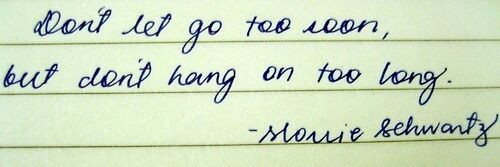 Don't let go too soon,
but don't hang on too long.
-Morrie Schwartz